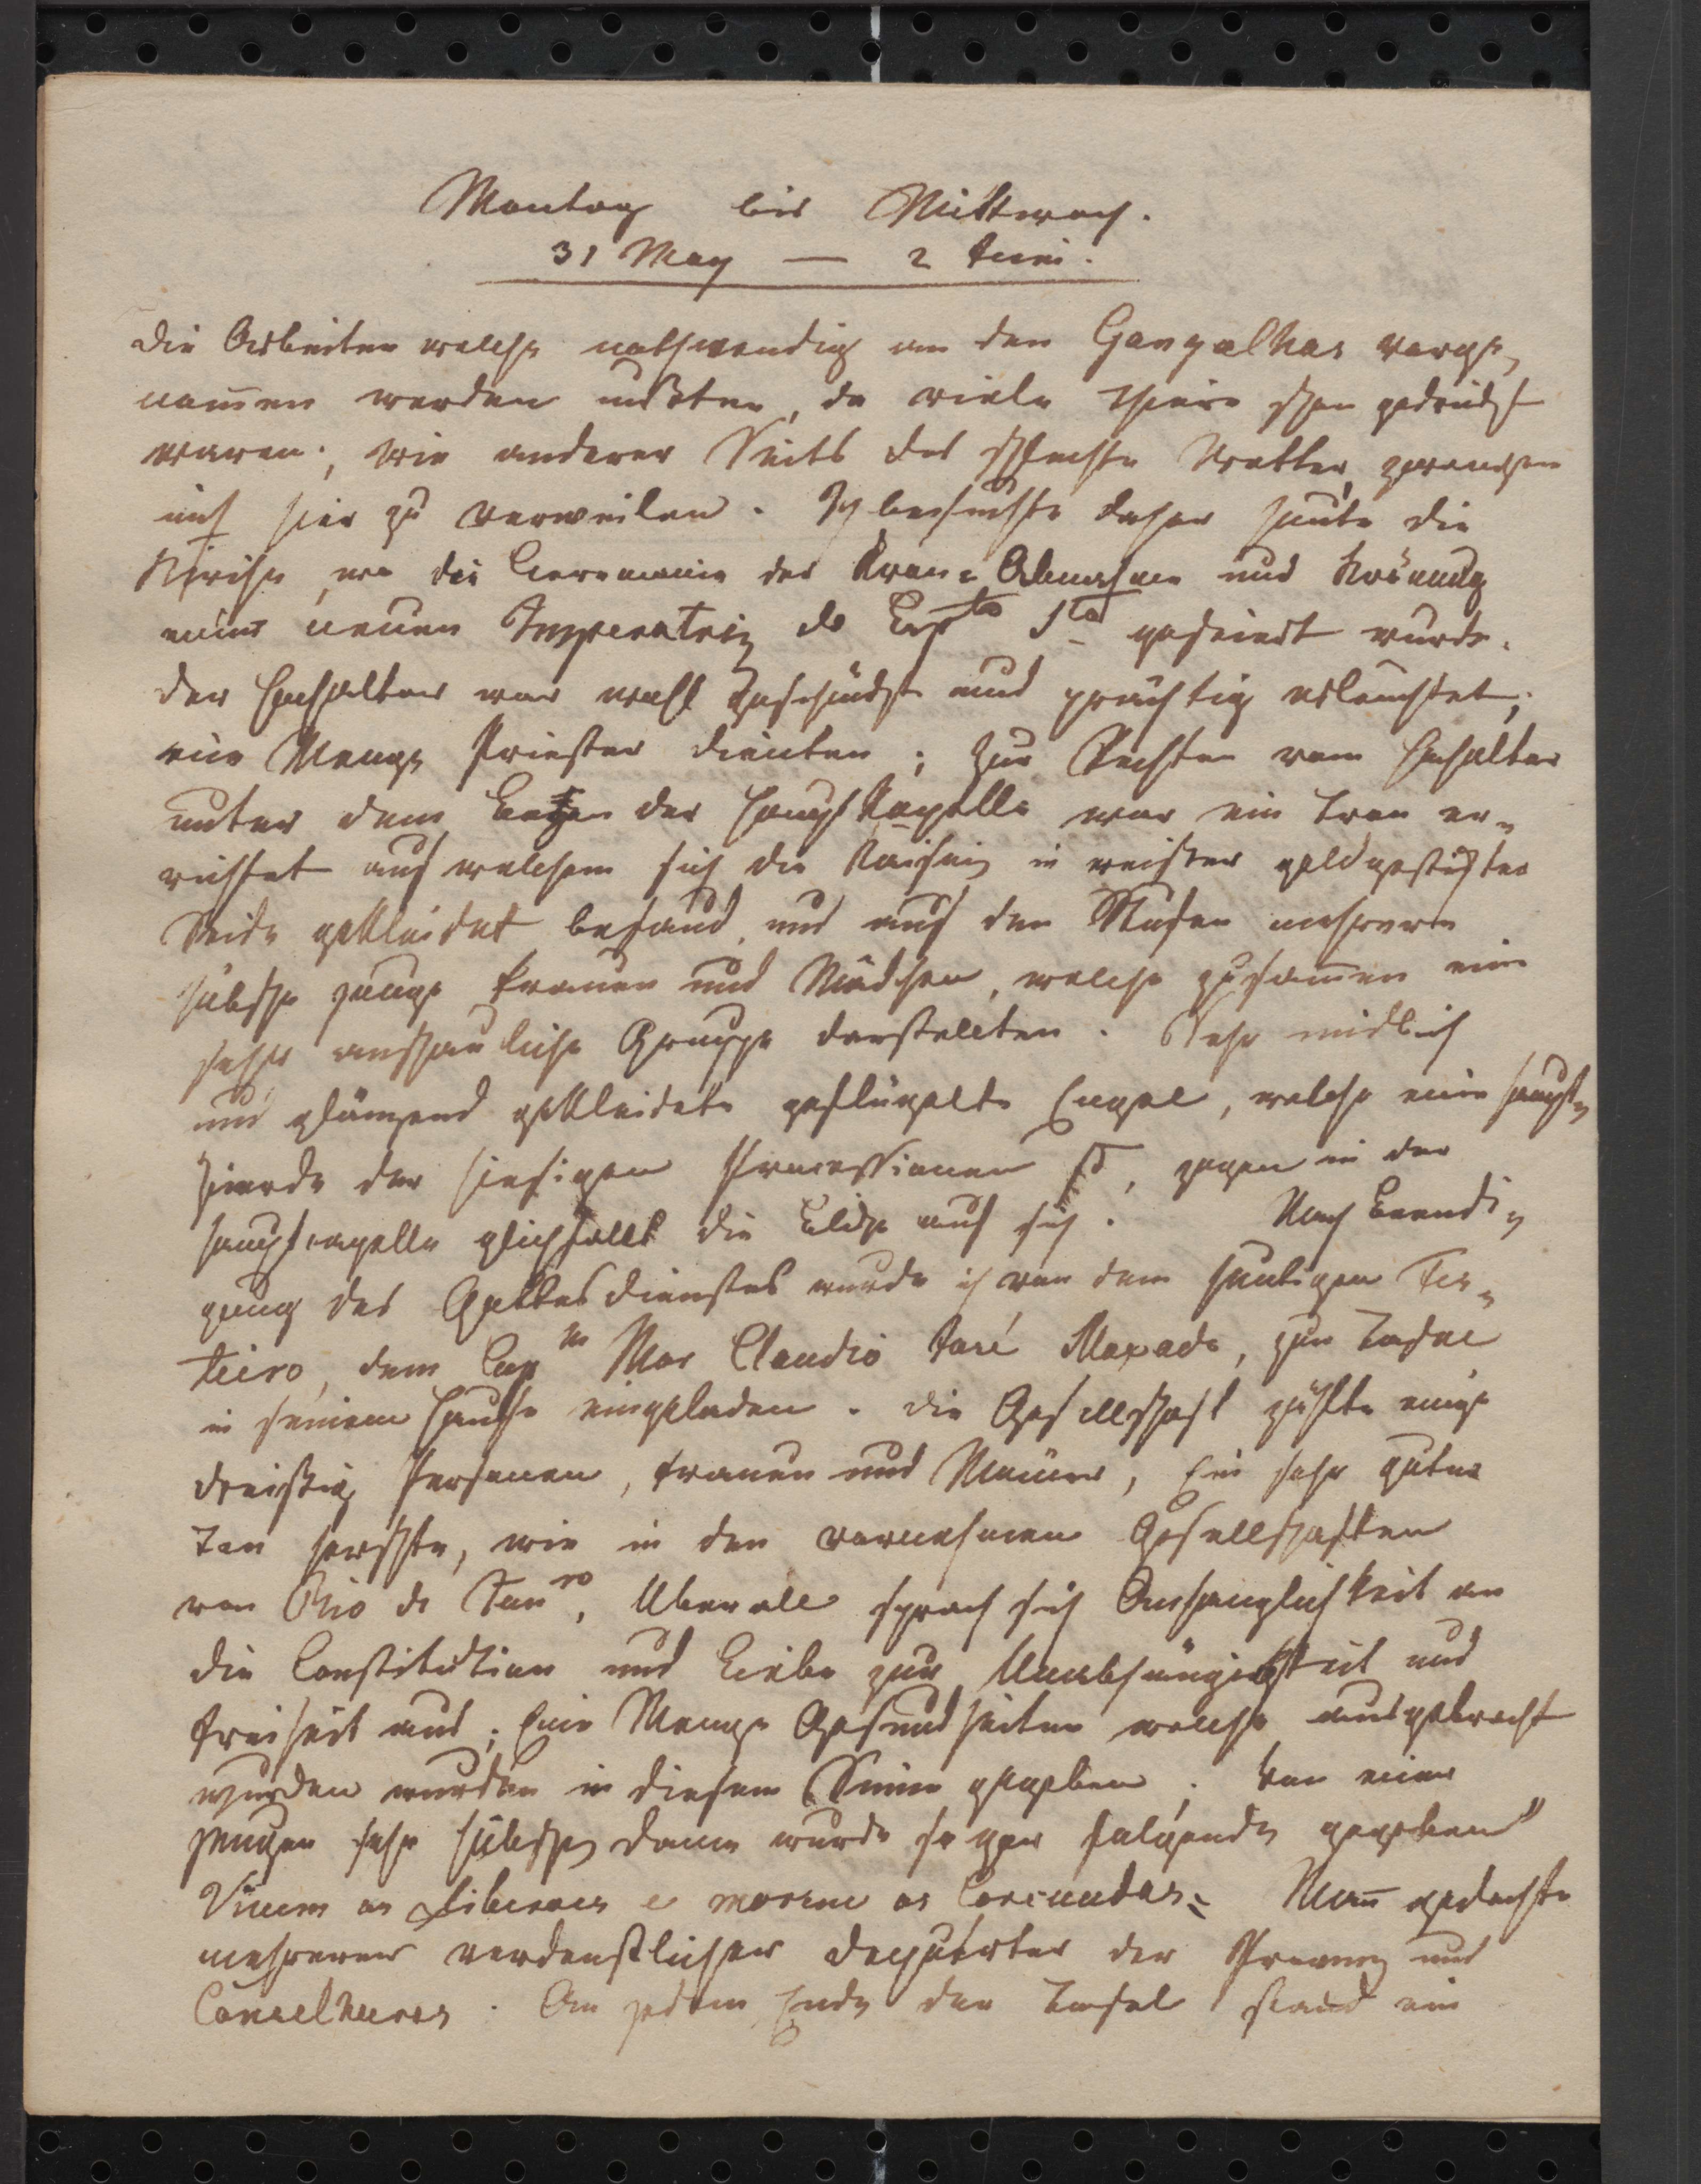 Montag bis Mittwoch.
31 May — 2 Juni.
Die Arbeiten welche nothwendig an den Gangalhas vorge-
nom̅en werden mußten, da viele Thiere schon gedrückt
waren; wie anderer Seits das schlechte Wetter, zwangen
mich hier zu verweilen. Ich besuchte daher heute die
Kirche, wo die Ceremonie der Kron-Abnahme und Krönung
einer neuen Imperatriz do Esp.to S.to gefeiert wurde.
Der Hochaltar war wohl geschmückt und prächtig erleuchtet;
eine Menge Priester dienten; zur Rechten vom Hochaltar
unter dem Bogen der Hauptkapelle war ein Tron er-
richtet auf welchem sich die Kaiserin in weißer goldgestickter
Seide gekleidet befand, und auf den Stufen mehrere
hübsche junge Frauen und Mädchen, welche zusam̅en eine
sehr anschauliche Gruppe darstellten. Sehr niedlich
und glänzend gekleidete geflügelte Engel, welche eine Haupt-
zierde der hiesigen Processionen sind, zogen in der
Hauptcapelle gleichfalls die Blicke auf sich. Nach Beendi-
gung des Gottesdienstes wurde ich von dem heutigen Fes-
teiro, dem Cap.m Mor Claudio José Maxado, zur Tafel
in seinem Hause eingeladen. Die Gesellschaft zählte einige
dreißig Personen, Frauen und Män̅er, Ein sehr guter
Ton herrschte, wie in den vornehmen Gesellschaften
von Rio de Jan.ro, Uberall sprach sich Anhänglichkeit an
die Constitution und Liebe zur Unabhängigkeit und
Freiheit aus; Eine Menge Gesundheiten welche ausgebracht
wurden wurden in diesem Sinne gegeben; Von einer
jungen sehr hübschen Dame wurde sogar folgende gegeben"
Vivem os Liberaes e morrem os Corcundas. Man̅ gedachte
mehrerer verdienstlicher Deputirter der Provinz und
Conselheiros. An jedem Ende der Tafel stand ein